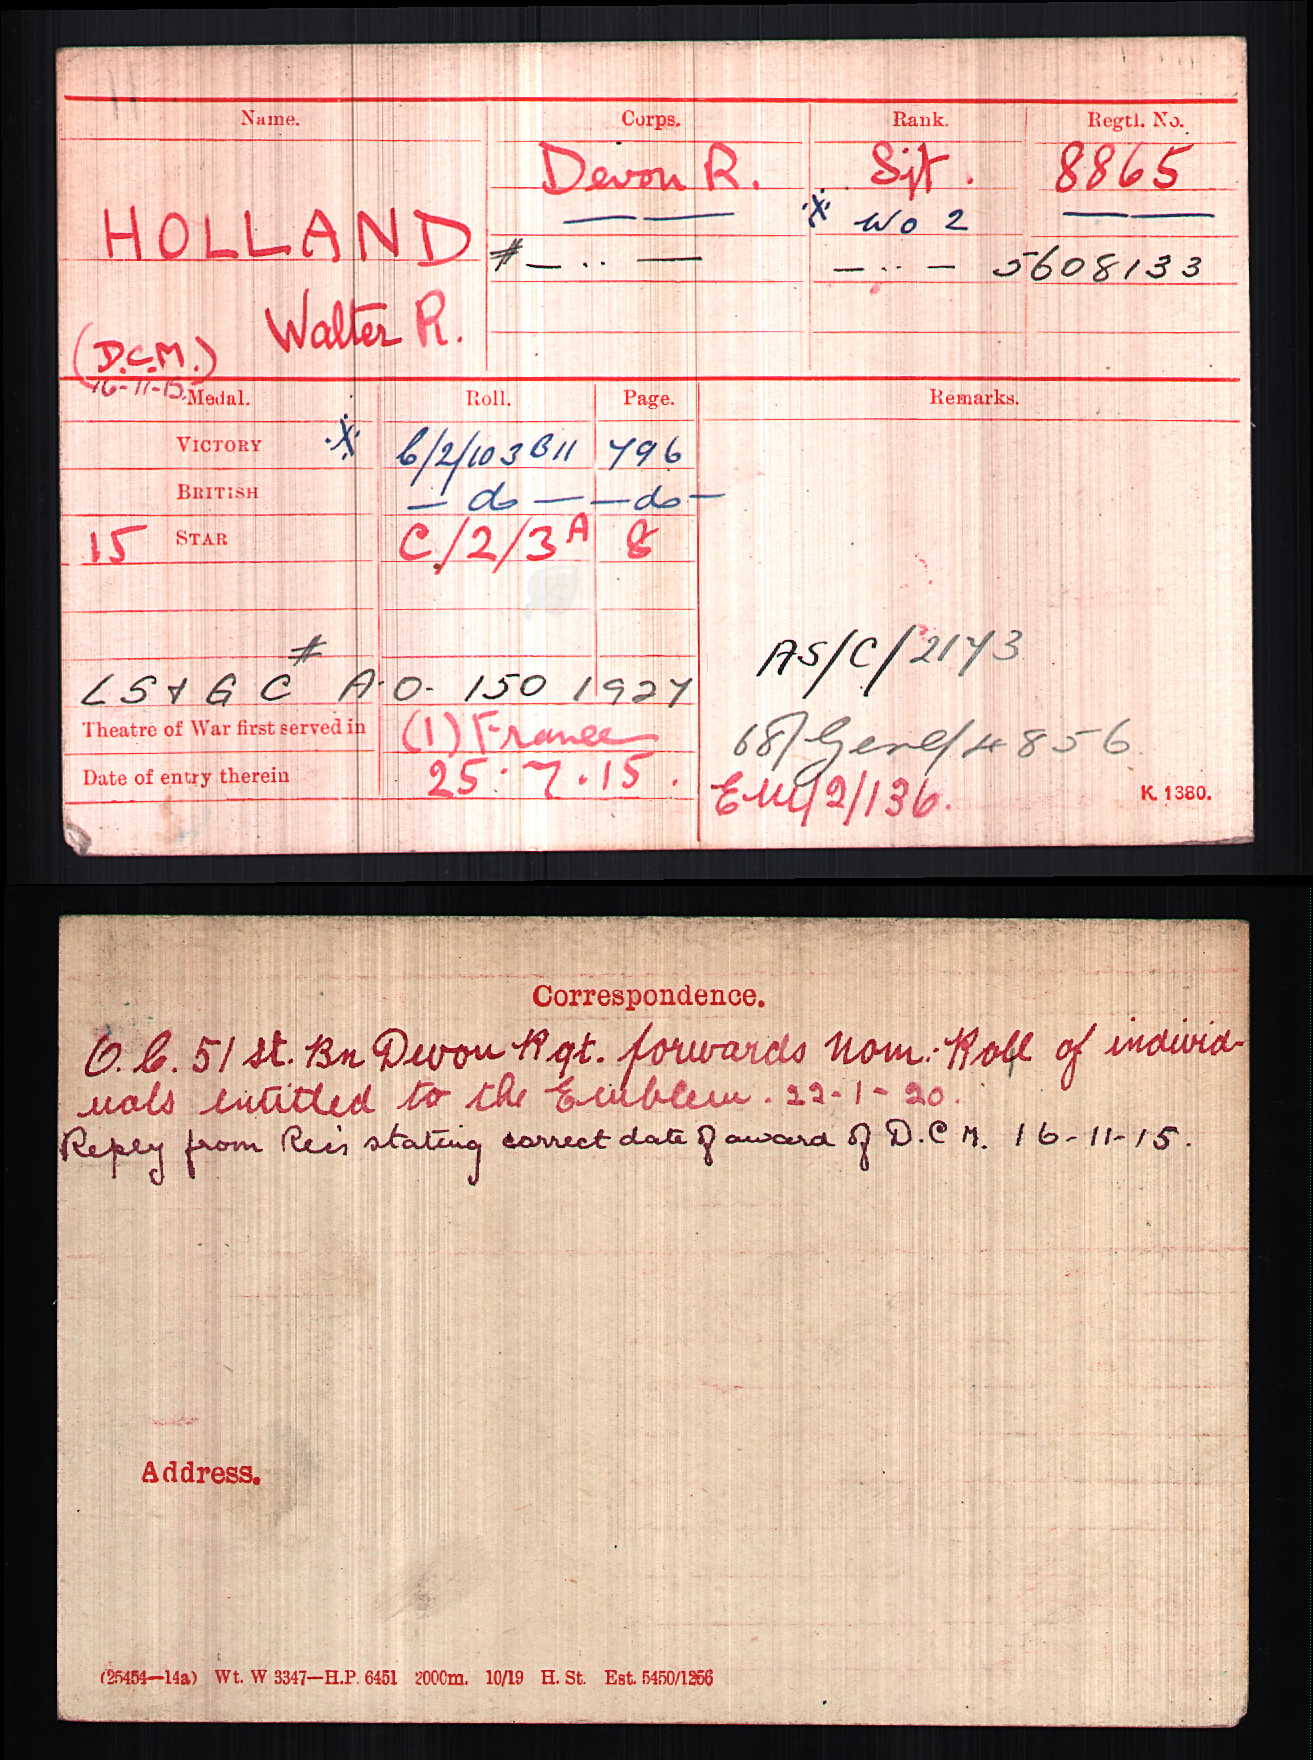 Name. Corps. Rank. Regtl. No.
Devon R. Sjt. 8865
HOLLAND — — * WO 2 — —
# — .. — — .. — 5608133
Walter R.
(D.C.M.)
16-11-15
Medal. Roll. Page. Remarks.
VICTORY * C/2/103 B11 796
BRITISH — do — — do —
15 STAR C/2/3A 8
#
AS/C/2173
LS & G C A.O. 150 1927
Theatre of War first served in (1) France
68/Genl/4856
Date of entry therein 25.7.15.
EM/2/136. K. 1380.
Correspondence.
O.C. 51 st. Bn Devon Rgt. forwards Nom: Roll of individ-
uals entitled to the Emblem. 22-1-20.
Reply from Rec's stating correct date of award of D.C.M. 16-11-15.
Address.
(25454—14a) Wt. W 3347—H.P. 6451 2000m. 10/19 H. St. Est. 5450/1256